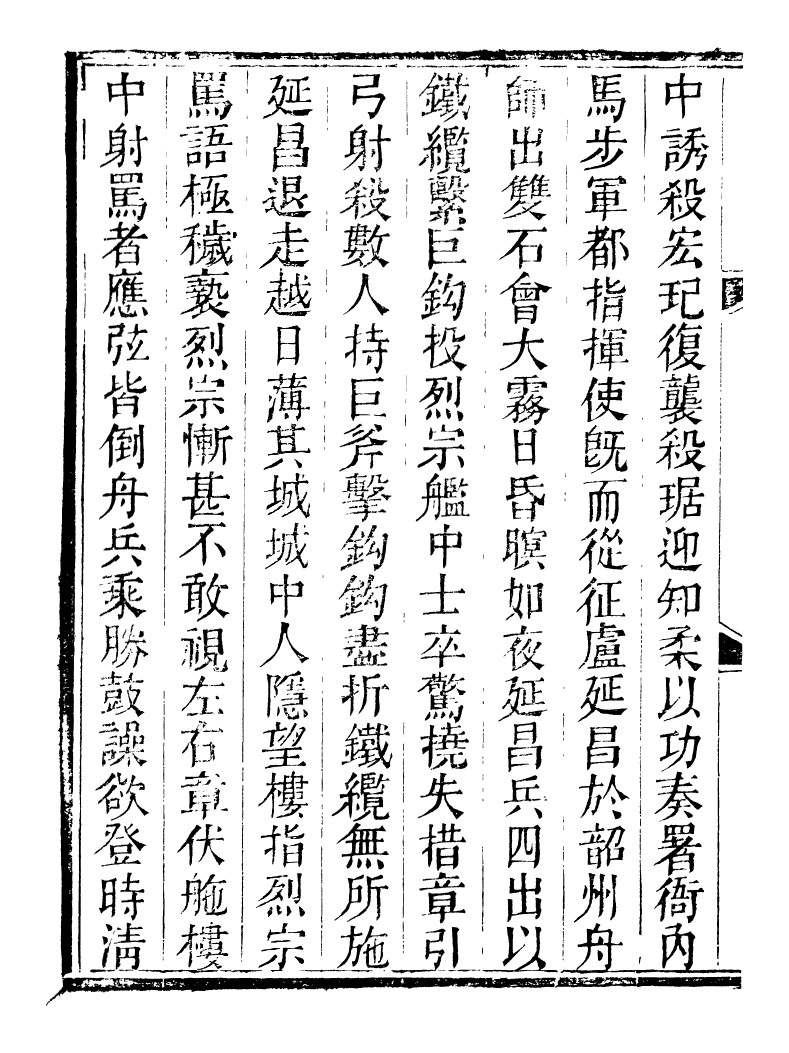 中誘殺宏玘復襲殺琚迎知柔以功奏署衙內
馬步軍都指揮使旣而從征盧延昌於韶州舟
師出雙石會大霧日昏暝如夜延昌兵四出以
鐵纜繫巨鈎投烈宗艦中士卒驚撓失措章引
弓射殺數人持巨斧擊鈎鈎盡折鐵纜無所施
延昌退走越日薄其城城中人隱望樓指烈宗
罵語極穢褻烈宗慚甚不敢視左右章伏舵樓
中射罵者應弦皆倒舟兵乘勝鼓譟欲登時淸